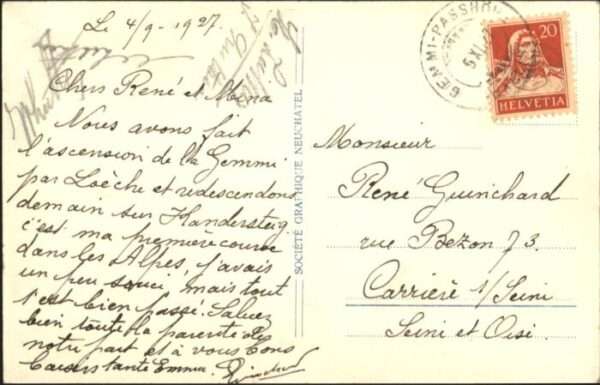 Le 4/9 - 1927.
Chers René et Mona
Nous avons fait
l'ascension de la Gemmi
par Loèche et redescendons
demain sur Kandersteig
c'est ma première course
dans les Alpes, j'avais
un peu souci, mais tout
s'est bien passé. Saluez
bien toute la parenté de
notre part et à vous bons
baisers tante Emma.
SOCIÉTÉ GRAPHIQUE NEUCHATEL
GEMMI-PASSHÖHE
20
HELVETIA
Monsieur
René Guinchard
rue Bezon 73.
Carrière s/Seini
Seini et Oisi.